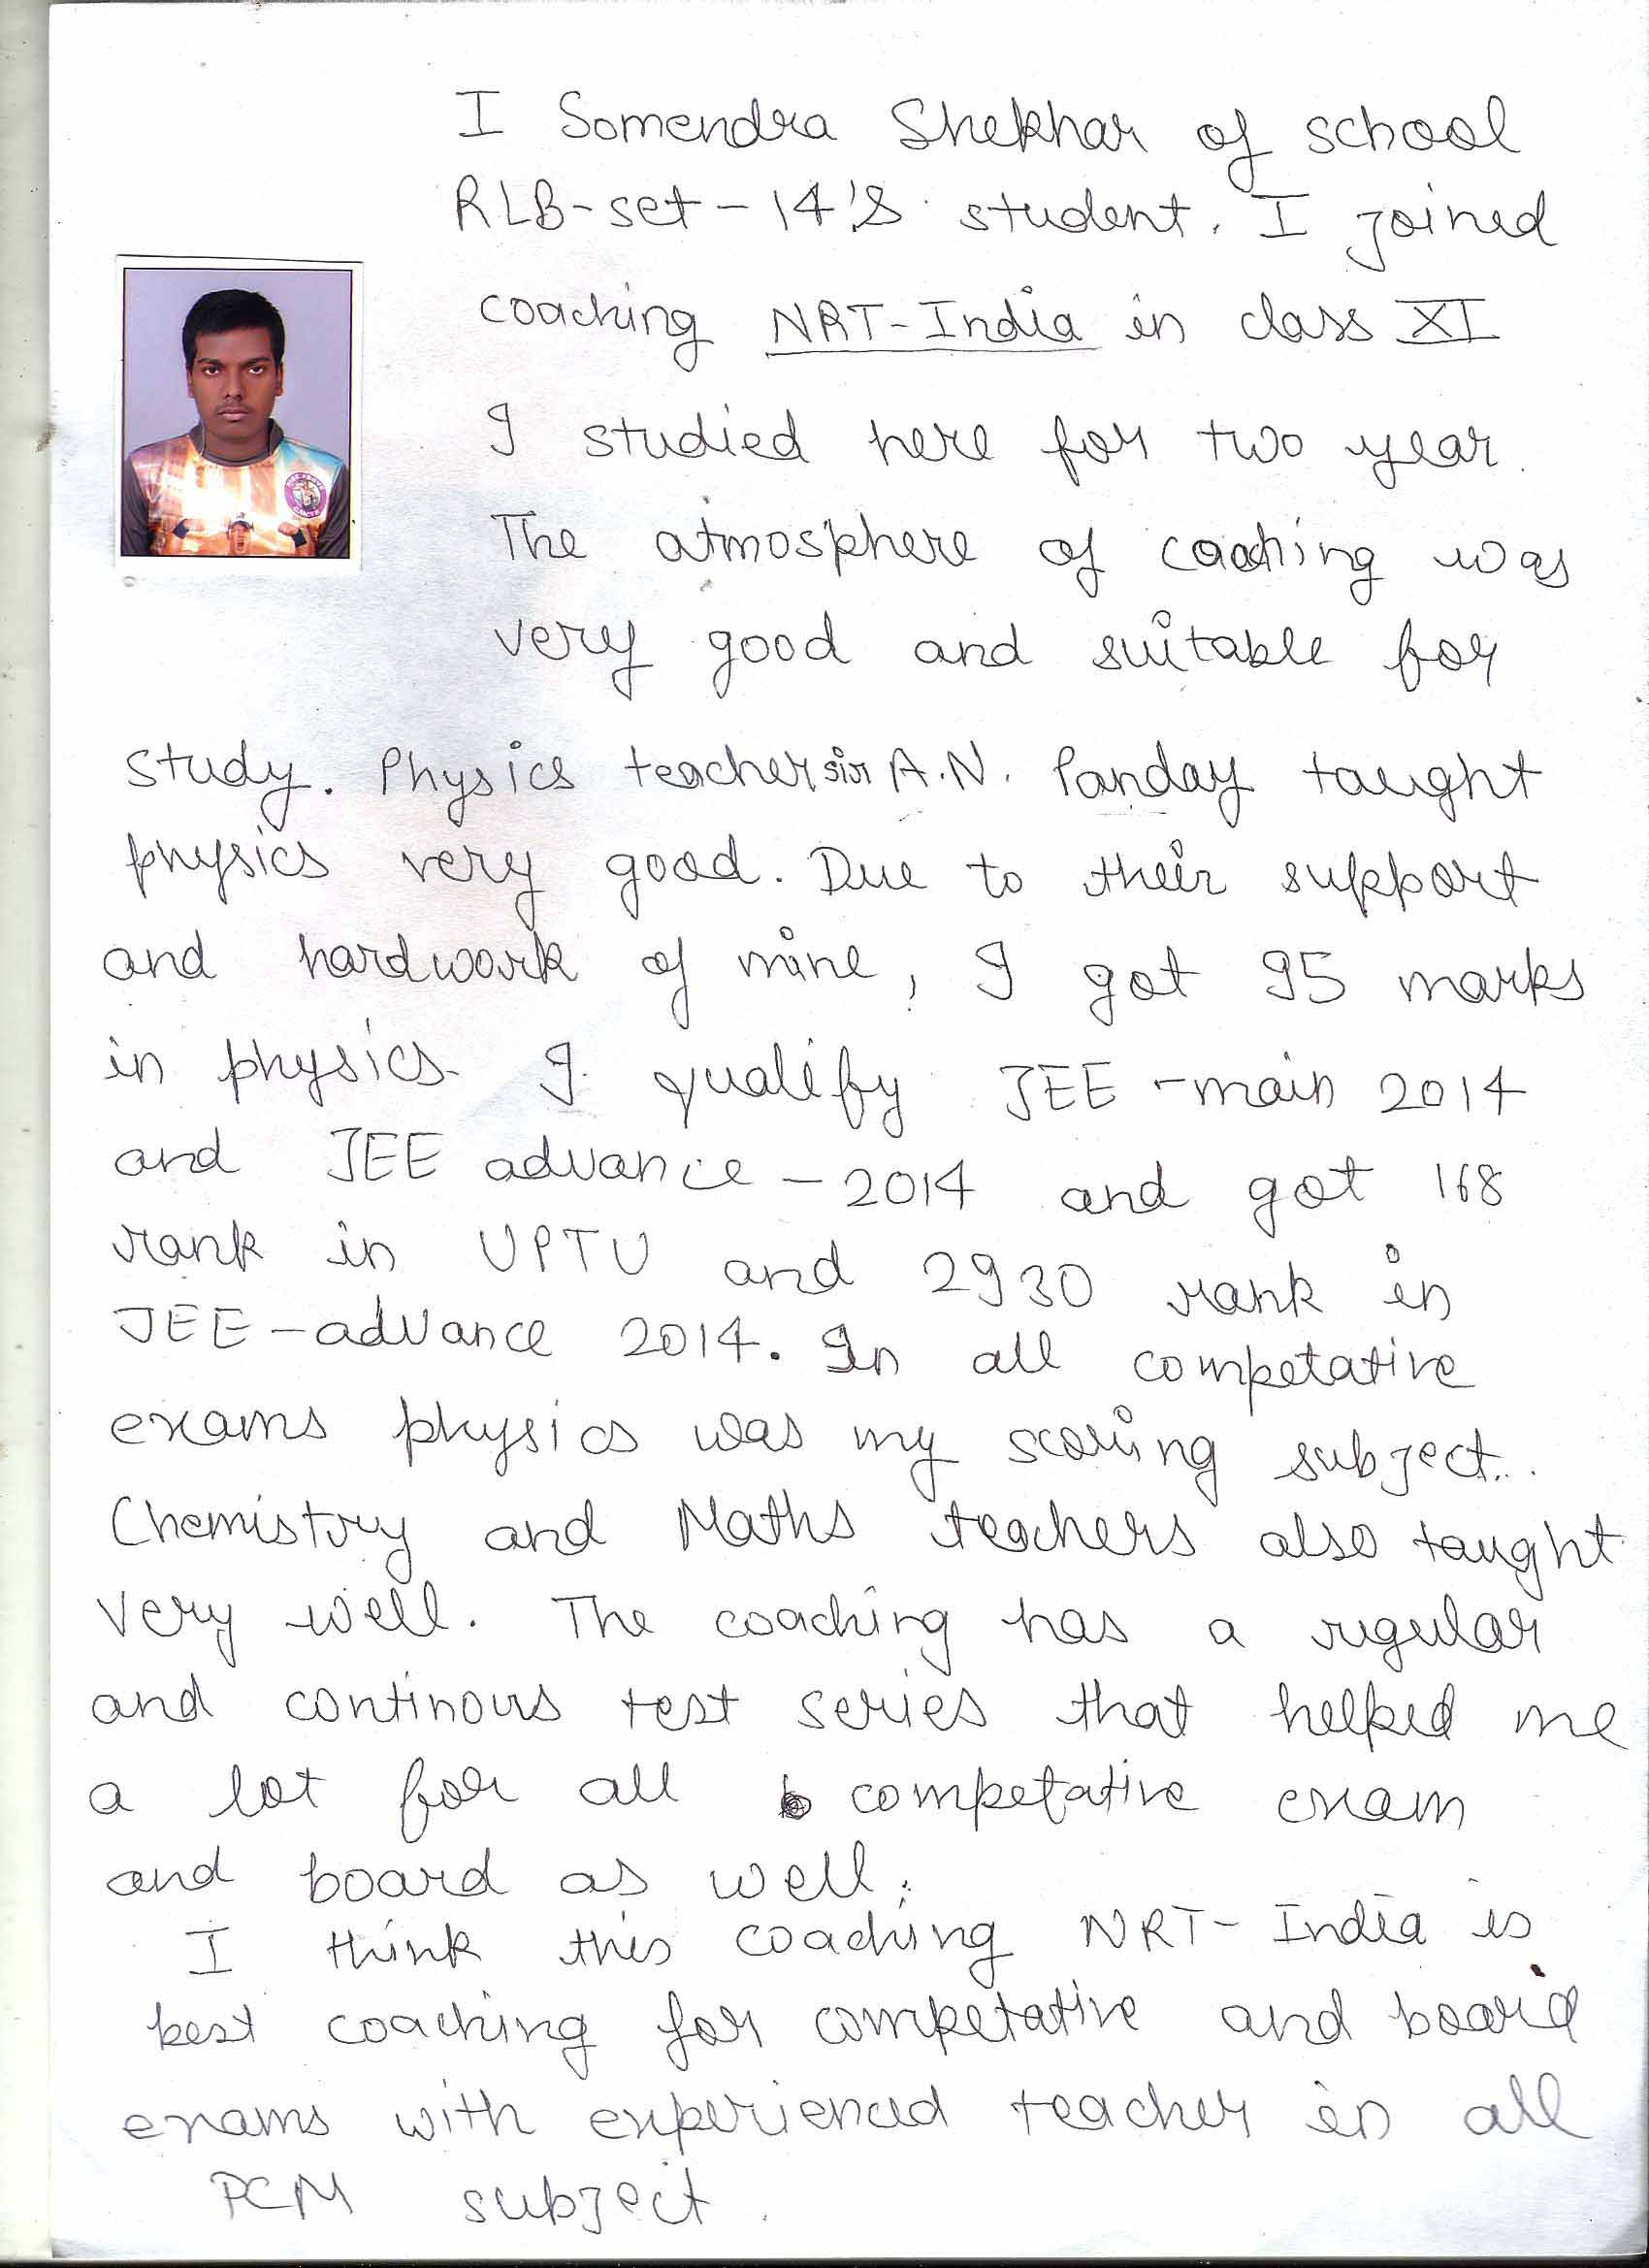 I Somendra Shekhar of school
RLB-set-14's student. I joined
coaching NRT-India in class XI
I studied here for two year.
The atmosphere of coaching was
very good and suitable for
study. Physics teacher sir A.N. Panday taught
physics very good. Due to their support
and hardwork of mine, I got 95 marks
in physics. I qualify JEE-main 2014
and JEE advance-2014 and got 168
rank in UPTU and 2930 rank in
JEE-advance 2014. In all competative
exams physics was my scoring subject..
Chemistry and Maths teachers also taught
very well. The coaching has a regular
and continous test series that helped me
a lot for all competative exam
and board as well.
I think this coaching NRT-India is
best coaching for competative and board
exams with experienced teacher in all
PCM subject.